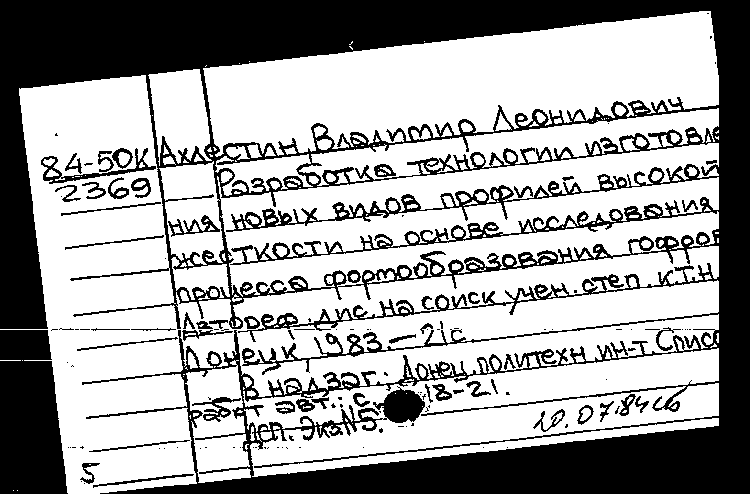 84-50К Ахлестин, Владимир Леонидович
2369 Разработка технологии изготовле
ния новых видов профилей высокой
жесткости на основе исследования
процесса формообразования гофров
Автореф. дис. на соиск учен. степ. к.т.н.
Донецк, 1983. — 21с.
В надзаг.: Донец. политехн. ин-т. Списо
работ авт.: с. 18-21.
ДСП. Экз N5.
20.07.84
5